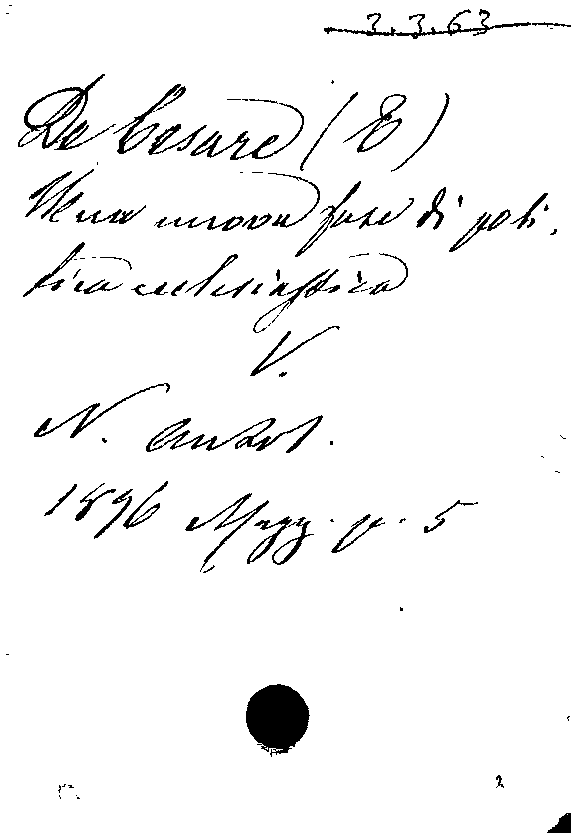 3.3.63
De Cesare (E)
Una nuova fase di poli,
tica ecclesiastica
V.
N. Antol.
1896 Magg. p. 5